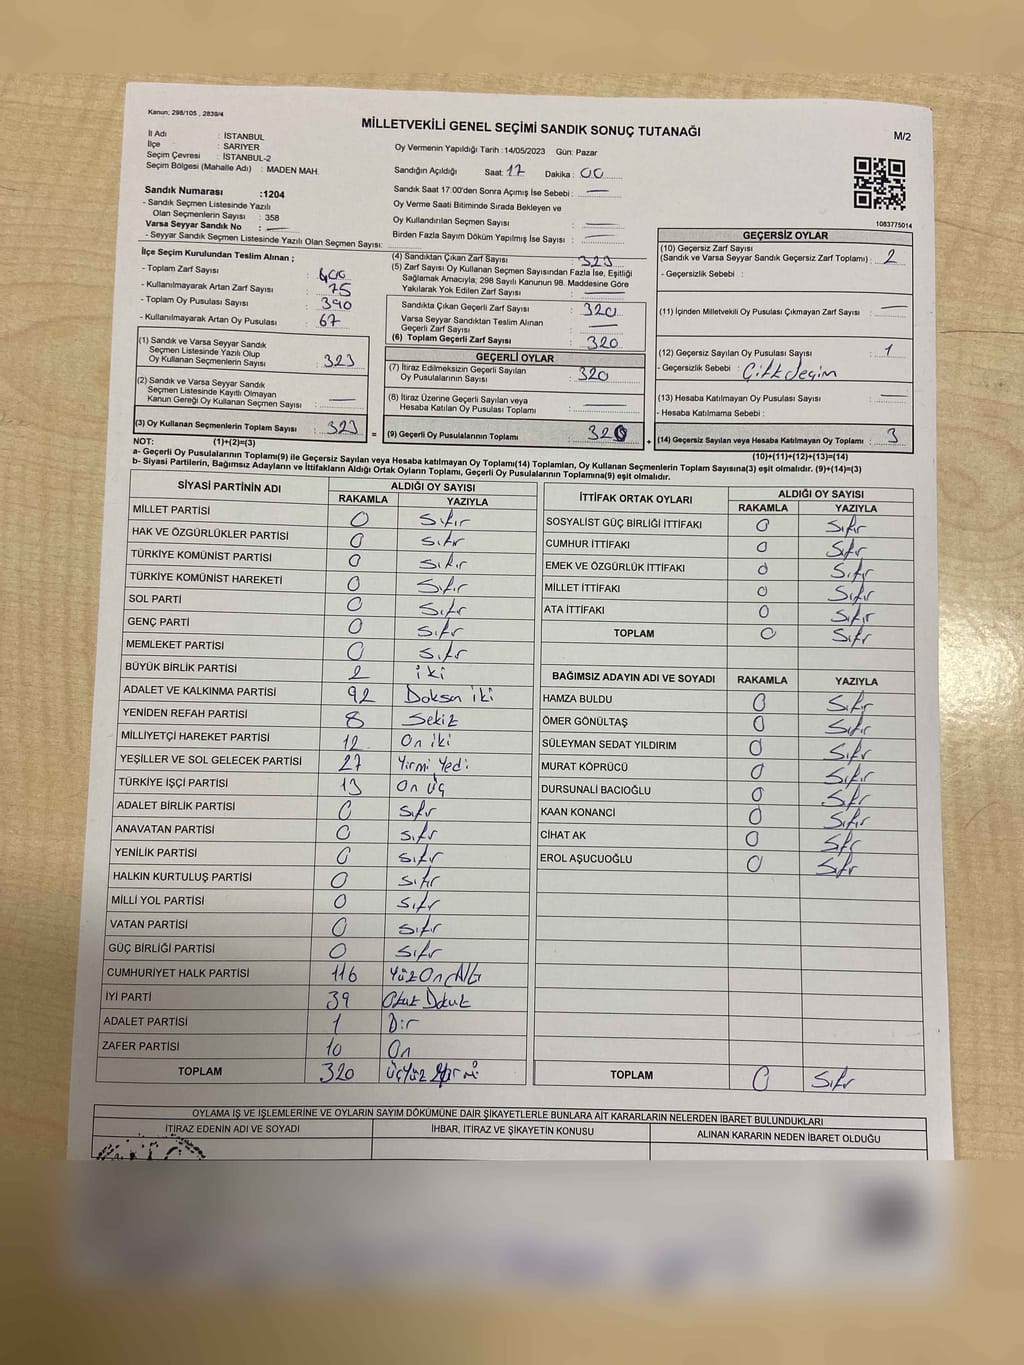 Kanun; 298/105 , 2839/4
MİLLETVEKİLİ GENEL SEÇİMİ SANDIK SONUÇ TUTANAĞI
M/2
İl Adı : İSTANBUL
İlçe : SARIYER
Seçim Çevresi : İSTANBUL-2
Seçim Bölgesi (Mahalle Adı) : MADEN MAH.
Oy Vermenin Yapıldığı Tarih :14/05/2023 Gün: Pazar
Sandığın Açıldığı Saat: 17 Dakika : 00
Sandık Saat 17:00'den Sonra Açılmış İse Sebebi : —
Oy Verme Saati Bitiminde Sırada Bekleyen ve
Oy Kullandırılan Seçmen Sayısı : —
Birden Fazla Sayım Döküm Yapılmış İse Sayısı : —
1083775014
Sandık Numarası :1204
- Sandık Seçmen Listesinde Yazılı
Olan Seçmenlerin Sayısı : 358
Varsa Seyyar Sandık No : —
- Seyyar Sandık Seçmen Listesinde Yazılı Olan Seçmen Sayısı:
İlçe Seçim Kurulundan Teslim Alınan ;
- Toplam Zarf Sayısı : 400
- Kullanılmayarak Artan Zarf Sayısı : 75
- Toplam Oy Pusulası Sayısı : 390
- Kullanılmayarak Artan Oy Pusulası : 67
(1) Sandık ve Varsa Seyyar Sandık
Seçmen Listesinde Yazılı Olup
Oy Kullanan Seçmenlerin Sayısı : 323
(2) Sandık ve Varsa Seyyar Sandık
Seçmen Listesinde Kayıtlı Olmayan
Kanun Gereği Oy Kullanan Seçmen Sayısı : —
(3) Oy Kullanan Seçmenlerin Toplam Sayısı : 323
(4) Sandıktan Çıkan Zarf Sayısı : 323
(5) Zarf Sayısı Oy Kullanan Seçmen Sayısından Fazla İse, Eşitliği
Sağlamak Amacıyla; 298 Sayılı Kanunun 98. Maddesine Göre
Yakılarak Yok Edilen Zarf Sayısı : —
Sandıkta Çıkan Geçerli Zarf Sayısı : 320
Varsa Seyyar Sandıktan Teslim Alınan
Geçerli Zarf Sayısı : —
(6) Toplam Geçerli Zarf Sayısı : 320
GEÇERLİ OYLAR
(7) İtiraz Edilmeksizin Geçerli Sayılan
Oy Pusulalarının Sayısı : 320
(8) İtiraz Üzerine Geçerli Sayılan veya
Hesaba Katılan Oy Pusulası Toplamı : —
= (9) Geçerli Oy Pusulalarının Toplamı : 320
GEÇERSİZ OYLAR
(10) Geçersiz Zarf Sayısı
(Sandık ve Varsa Seyyar Sandık Geçersiz Zarf Toplamı) : 2
- Geçersizlik Sebebi :
(11) İçinden Milletvekili Oy Pusulası Çıkmayan Zarf Sayısı : —
(12) Geçersiz Sayılan Oy Pusulası Sayısı : 1
- Geçersizlik Sebebi :
(13) Hesaba Katılmayan Oy Pusulası Sayısı : —
- Hesaba Katılmama Sebebi :
+ (14) Geçersiz Sayılan veya Hesaba Katılmayan Oy Toplamı : 3
NOT: (1)+(2)=(3)
(10)+(11)+(12)+(13)=(14)
a- Geçerli Oy Pusulalarının Toplamı(9) ile Geçersiz Sayılan veya Hesaba katılmayan Oy Toplamı(14) Toplamları, Oy Kullanan Seçmenlerin Toplam Sayısına(3) eşit olmalıdır. (9)+(14)=(3)
b- Siyasi Partilerin, Bağımsız Adayların ve İttifakların Aldığı Ortak Oyların Toplamı, Geçerli Oy Pusulalarının Toplamına(9) eşit olmalıdır.
SİYASİ PARTİNİN ADI ALDIĞI OY SAYISI
RAKAMLA YAZIYLA
MİLLET PARTİSİ 0 Sıfır
HAK VE ÖZGÜRLÜKLER PARTİSİ 0 Sıfır
TÜRKİYE KOMÜNİST PARTİSİ 0 Sıfır
TÜRKİYE KOMÜNİST HAREKETİ 0 Sıfır
SOL PARTİ 0 Sıfır
GENÇ PARTİ 0 Sıfır
MEMLEKET PARTİSİ 0 Sıfır
BÜYÜK BİRLİK PARTİSİ 2 iki
ADALET VE KALKINMA PARTİSİ 92 Doksan iki
YENİDEN REFAH PARTİSİ 8 Sekiz
MİLLİYETÇİ HAREKET PARTİSİ 12 On iki
YEŞİLLER VE SOL GELECEK PARTİSİ 27 Yirmi Yedi
TÜRKİYE İŞÇİ PARTİSİ 13 On üç
ADALET BİRLİK PARTİSİ 0 Sıfır
ANAVATAN PARTİSİ 0 Sıfır
YENİLİK PARTİSİ 0 Sıfır
HALKIN KURTULUŞ PARTİSİ 0 Sıfır
MİLLİ YOL PARTİSİ 0 Sıfır
VATAN PARTİSİ 0 Sıfır
GÜÇ BİRLİĞİ PARTİSİ 0 Sıfır
CUMHURİYET HALK PARTİSİ 116 Yüz On Altı
İYİ PARTİ 39 Otuz Dokuz
ADALET PARTİSİ 1 Bir
ZAFER PARTİSİ 10 On
TOPLAM 320 üçyüz yirmi
İTTİFAK ORTAK OYLARI ALDIĞI OY SAYISI
RAKAMLA YAZIYLA
SOSYALİST GÜÇ BİRLİĞİ İTTİFAKI 0 Sıfır
CUMHUR İTTİFAKI 0 Sıfır
EMEK VE ÖZGÜRLÜK İTTİFAKI 0 Sıfır
MİLLET İTTİFAKI 0 Sıfır
ATA İTTİFAKI 0 Sıfır
TOPLAM 0 Sıfır
BAĞIMSIZ ADAYIN ADI VE SOYADI RAKAMLA YAZIYLA
HAMZA BULDU 0 Sıfır
ÖMER GÖNÜLTAŞ 0 Sıfır
SÜLEYMAN SEDAT YILDIRIM 0 Sıfır
MURAT KÖPRÜCÜ 0 Sıfır
DURSUNALİ BACIOĞLU 0 Sıfır
KAAN KONANCİ 0 Sıfır
CİHAT AK 0 Sıfır
EROL AŞUCUOĞLU 0 Sıfır
TOPLAM 0 Sıfır
OYLAMA İŞ VE İŞLEMLERİNE VE OYLARIN SAYIM DÖKÜMÜNE DAİR ŞİKAYETLERLE BUNLARA AİT KARARLARIN NELERDEN İBARET BULUNDUKLARI
İTİRAZ EDENİN ADI VE SOYADI İHBAR, İTİRAZ VE ŞİKAYETİN KONUSU ALINAN KARARIN NEDEN İBARET OLDUĞU